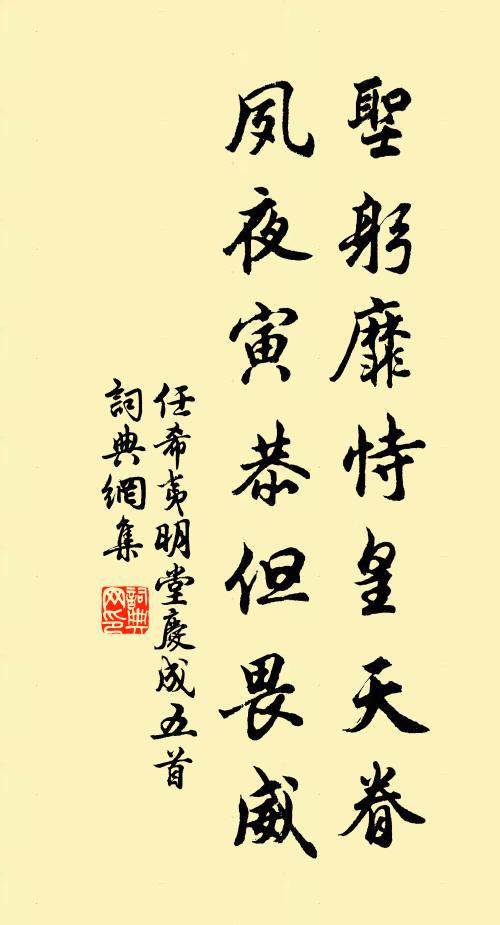 聖躬靡恃皇天眷
夙夜寅恭但畏威
任希夷明堂慶成五首
詞典網集
詞典网印